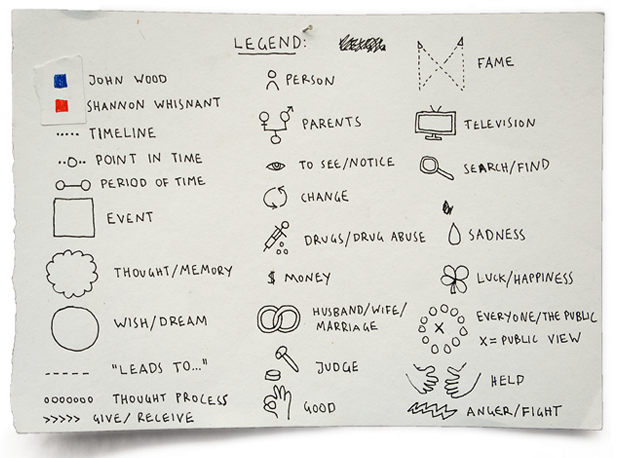 LEGEND:
JOHN WOOD
SHANNON WHISNANT
TIMELINE
POINT IN TIME
PERIOD OF TIME
EVENT
THOUGHT/MEMORY
WISH/DREAM
"LEADS TO..."
THOUGHT PROCESS
>>>>> GIVE/RECEIVE
PERSON
PARENTS
TO SEE/NOTICE
CHANGE
DRUGS/DRUG ABUSE
$ MONEY
HUSBAND/WIFE/
MARRIAGE
JUDGE
GOOD
FAME
TELEVISION
SEARCH/FIND
SADNESS
LUCK/HAPPINESS
EVERYONE/THE PUBLIC
X = PUBLIC VIEW
X
HELD
ANGER/FIGHT